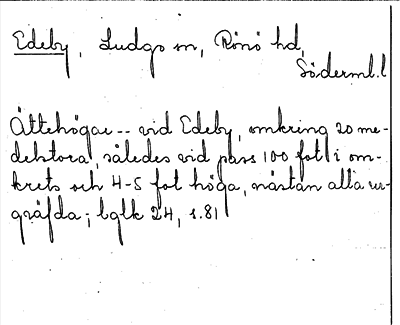 Edeby, Ludgo sn, Rönö hd,
Söderml. l
Ättehögar -- vid Edeby, omkring 20 me-
delstora, således vid pass 100 fot i om-
krets och 4-5 fot höga, nästan alla ur-
gräfda; bglk 24, s. 81